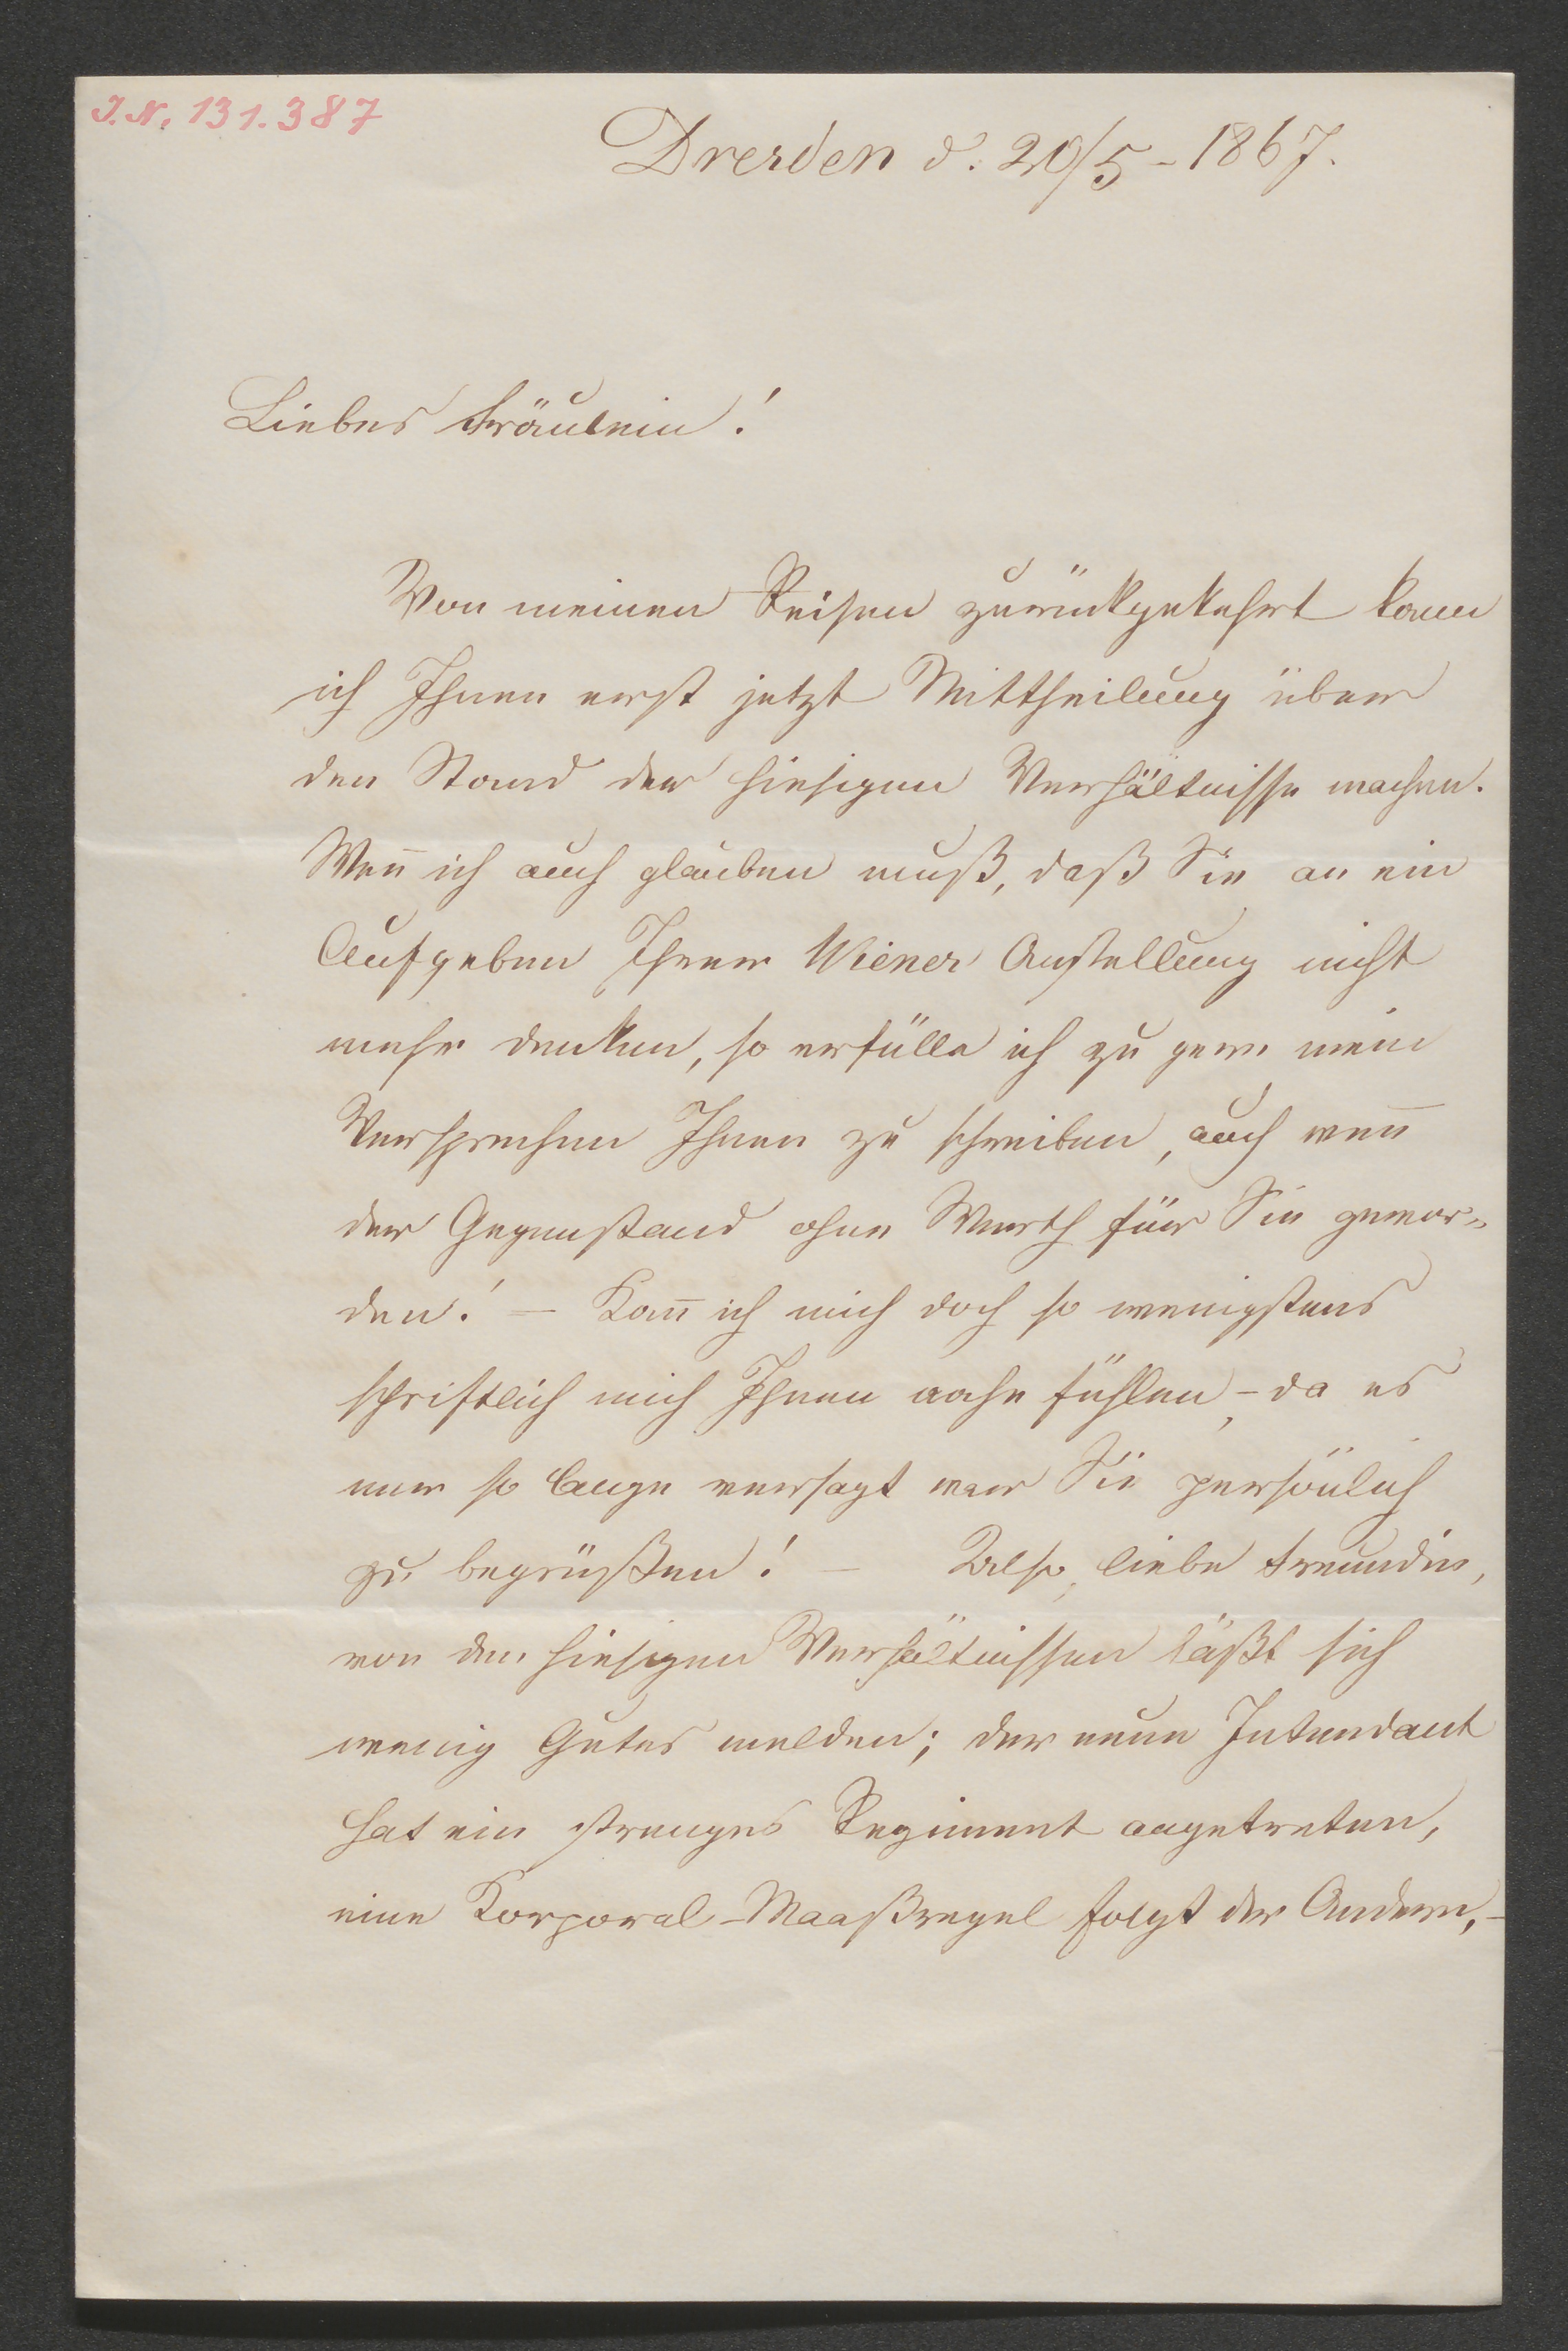 J. N. 131.387
Dresden d. 20/5 - 1867.
Liebes Fräulein!
Von meinen Reisen zurückgekehrt kann
ich Ihnen erst jetzt Mittheilung über
den Stand der hiesigen Verhältnisse machen.
Wen̅ ich auch glauben muß, daß Sie an ein
Aufgeben Ihrer Wiener Anstellung nicht
mehr denken, so erfülle ich zu gern mein
Versprechen Ihnen zu schreiben, auch wen̅
der Gegenstand ohne Werth für Sie gewor-
den! – Kan̅ ich mich doch so wenigstens
schriftlich mich Ihnen nahe fühlen, – da es
mir so lange versagt war Sie persönlich
zu begrüßen! – Also, liebe Freundin,
von den hiesigen Verhältnissen läßt sich
wenig Gutes melden; der neue Intendant
hat ein strenges Regiment angetreten,
eine Korporal-Maaßregel folgt der Andern, –